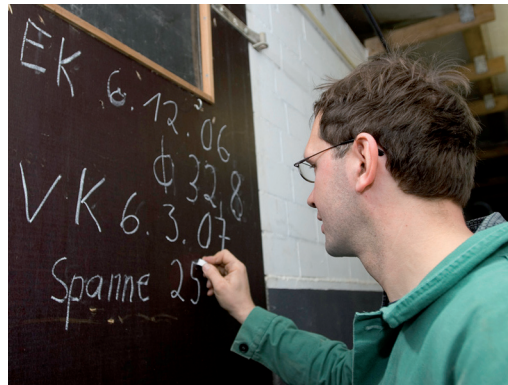 EK 6.12.06
Ø 32,8
VK 6.3.07
Spanne 25